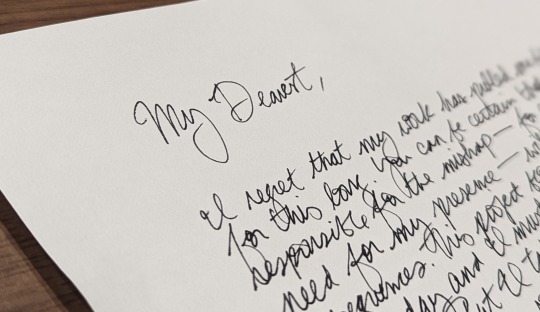 My Dearest,
I regret that my work has pulled
for this long. You can be certain
responsible for the mishap — for
need for my presence —
This project
day and I must
But